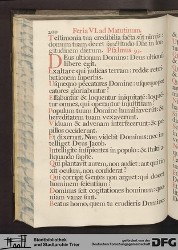 Feria VI. ad Matutinum.
Testimonia tua credibilia facta sunt nimis
domum tuam decet sanctitudo Dñe in lon
gitudinem dierum. Psalmus 93.
Deus ultionum Dominus: Deus ultionum
libere egit.
Exaltare qui judicas terram: redde retri
butionem superbis.
Usquequo peccatores Domine: usquequo pec
catores gloriabuntur?
Effabuntur & loquentur iniquitatem: loquen
tur omnes, qui operantur injustitiam?
Populum tuum Domine humiliaverunt: &
hereditatem tuam vexaverunt.
Viduam & advenam interfecerunt: & pu
pillos occiderunt.
Et dixerunt, Non videbit Dominus: nec in
telliget Deus Jacob.
Intelligite insipientes in populo: & stulti
aliquando sapite.
Qui plantavit aurem, non audiet: aut qui
finxit oculum, non considerat?
Qui corripit Gentes non arguet: qui docet
hominem scientiam?
Dominus scit cogitationes hominum: quoni
am vanæ sunt.
Beatus homo, quem tu erudieris Domine:
Stadtbibliothek
und Stadtarchiv Trier
DFG